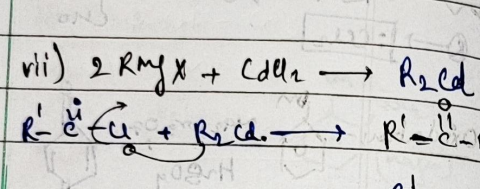 vii) 2 RMgX + CdCl2 ⟶ R2Cd
O
R'- C - Cl + R2Cd. ⟶ R' - C -